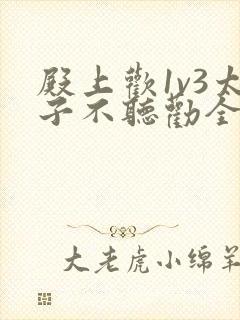 殿上歡1v3太
子不聽勸全
大老虎小绵羊